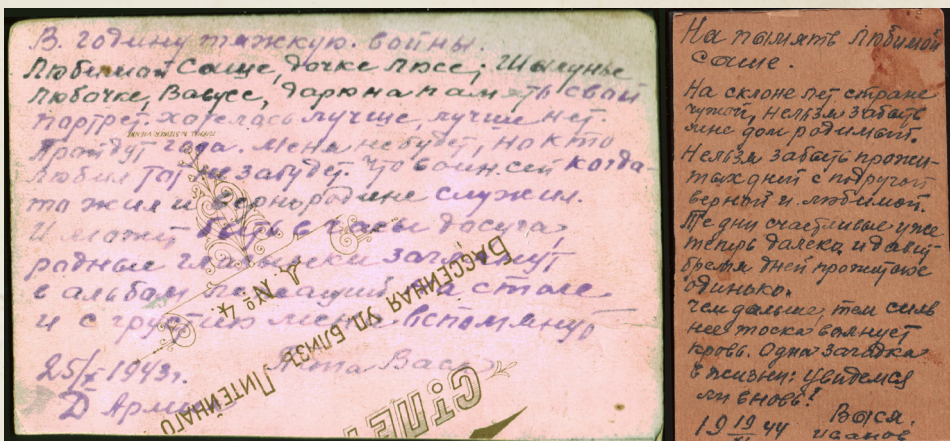 В. годину тяжкую. войны.
Любимой Саше, дочке Люсе; Шалунье
Любочке, Вавусе, дарю на память свой
портрет. хотелась лучше, лучше нет.
Пройдут года. меня не будет, но кто
любил тот не забудет. Что воин сей когда-
то жил и верно родине служил.
И может быть в часы досуга,
родные глазыньки заглянут
в альбом на столе
и с грустию меня вспомянут
25/X 1943г. Папа Вася
Д Армия
БАССЕЙНАЯ УЛ. БЛИЗЬ ЛИТЕЙНАГО
Д. № 4.
На память Любимой
Саше.
На склоне лет стране
чужой, нельзя забыть
мне дом родимый.
Нельзя забыть прожи-
тых дней с подругой
верной и любимой.
Те дни счастливые уже
теперь далеко и давит
бремя дней прожитое
одинько.
чем дальше, тем силь
нее тоска волнует
кровь. Одна загадка
в жизни: увидемся
ли вновь!
19 19 44 Вася.